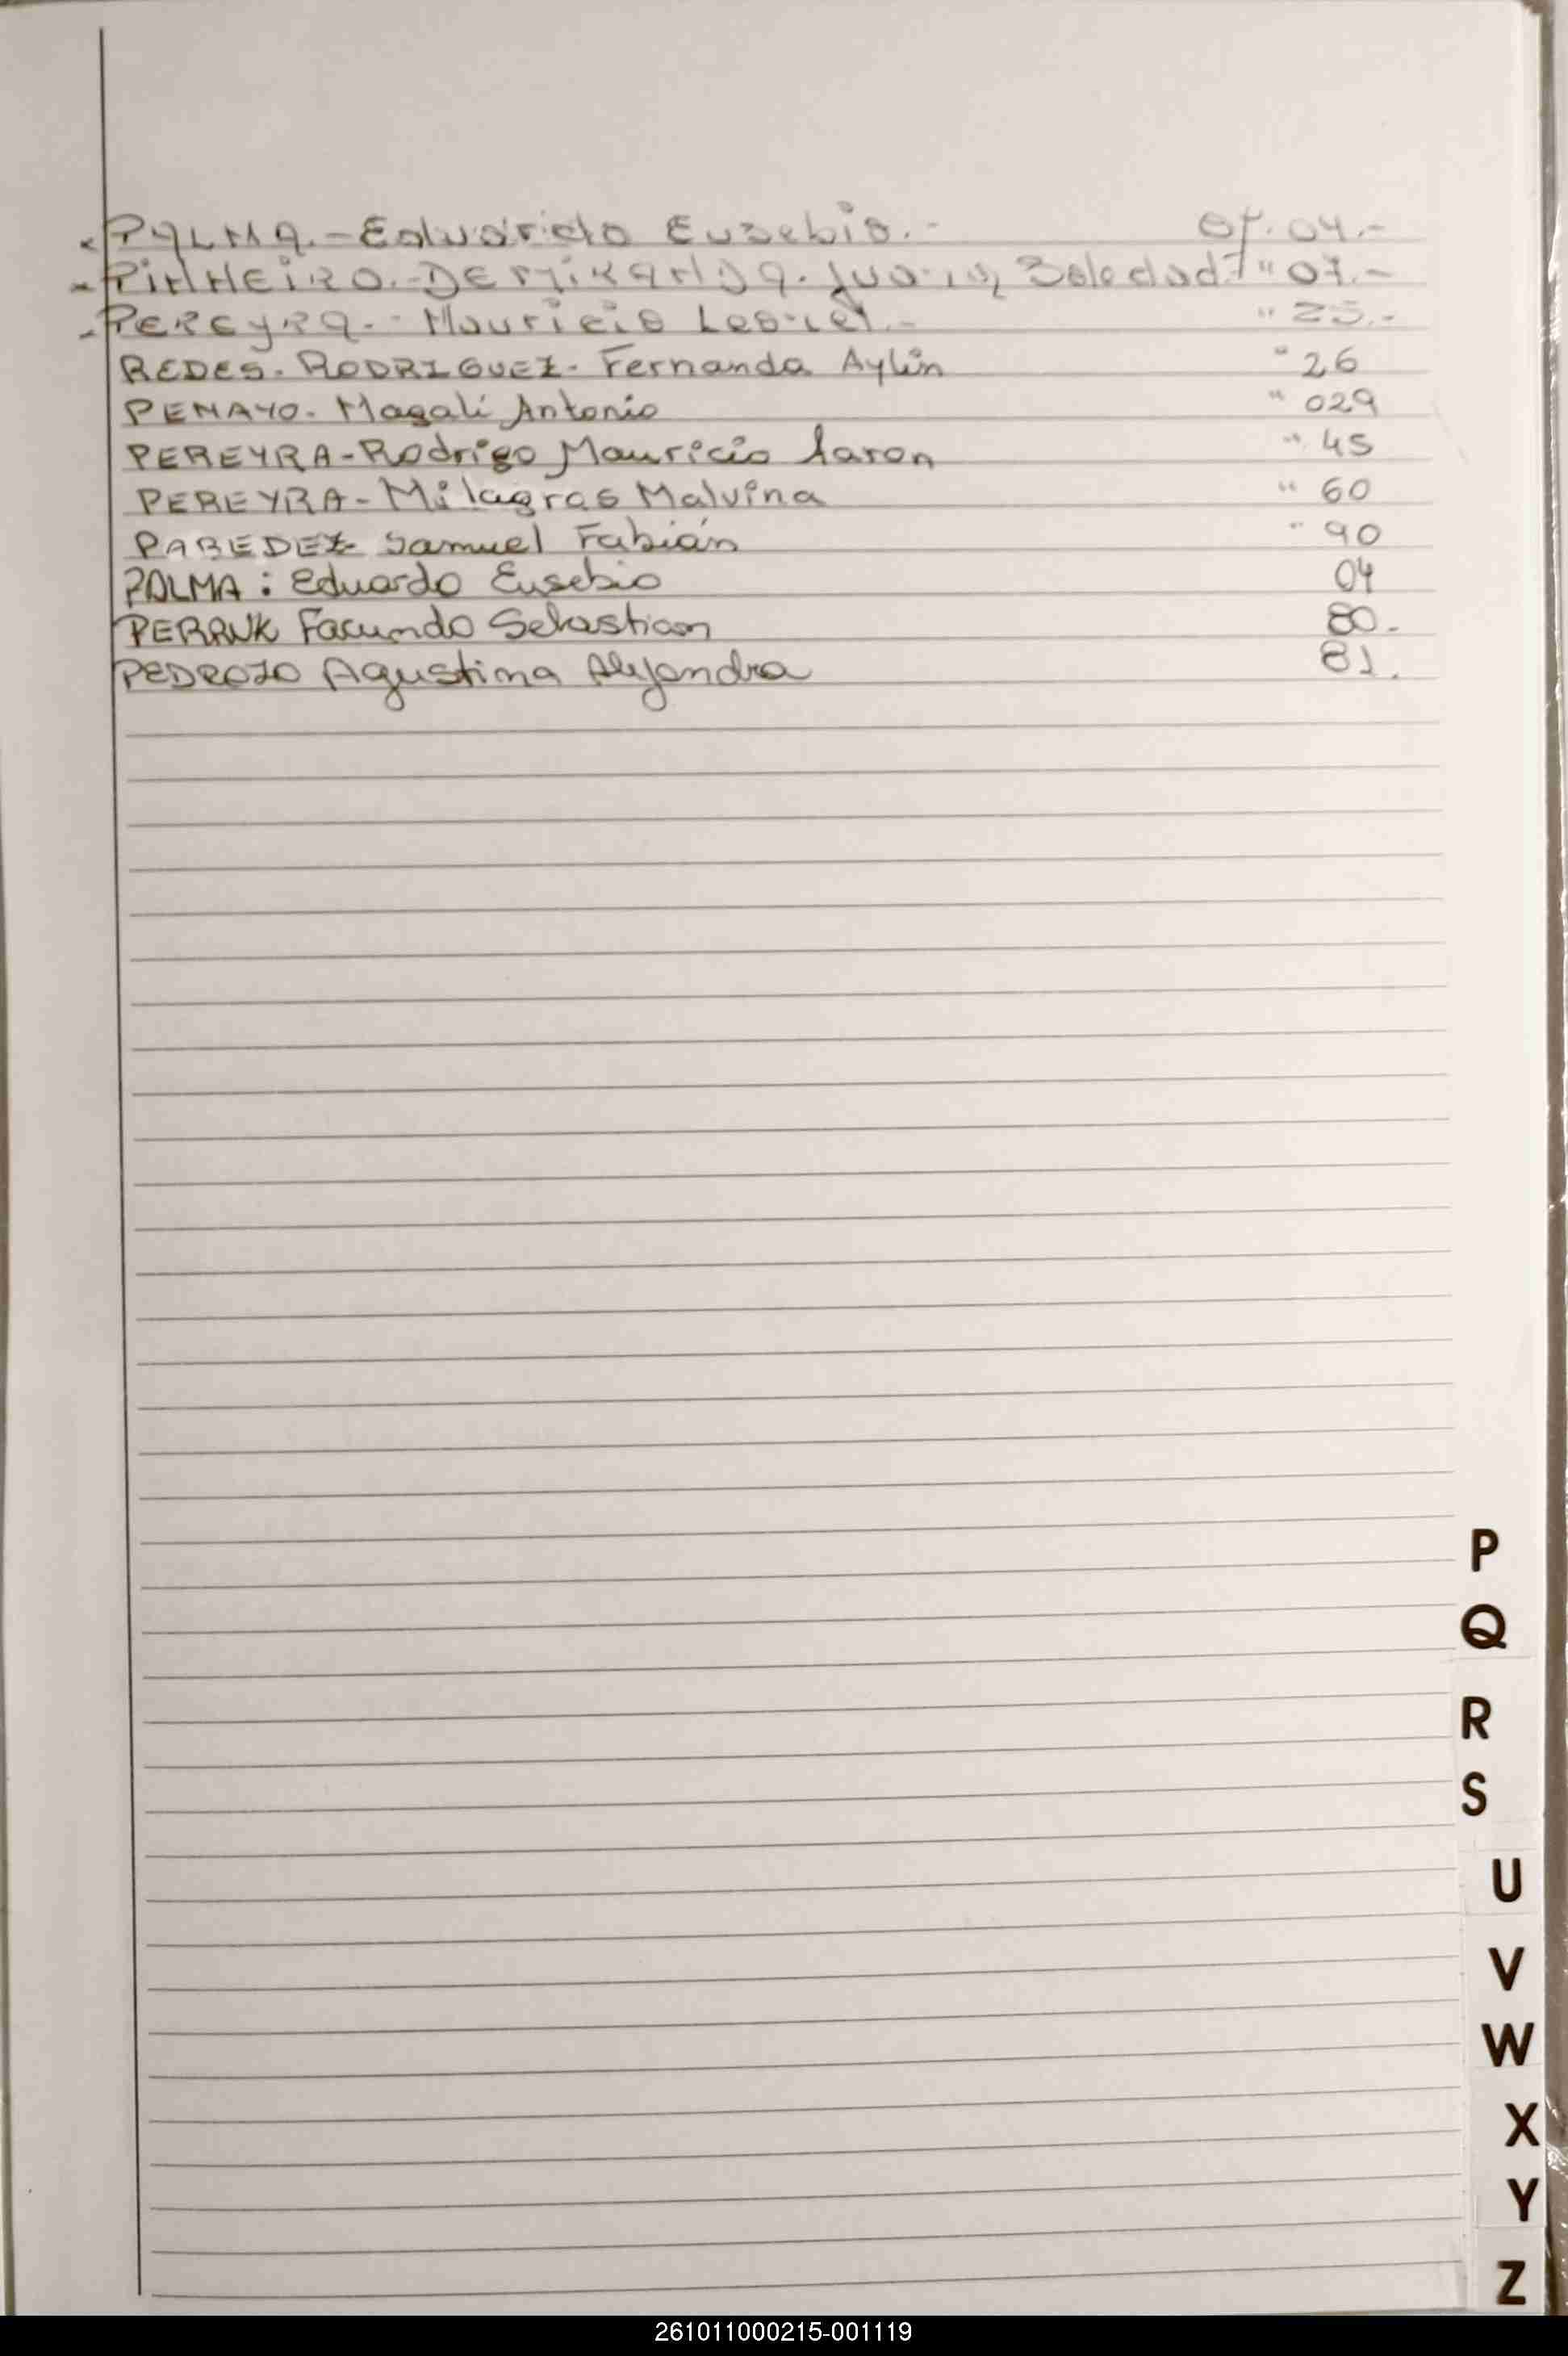 PALMA.- Eduardo Eusebio.- Of. 04.-
PINHEIRO.- DE MIRANDA. Soledad " 07.-
PEREYRA.- Mauricio Leonel.- " 25.-
REDES. RODRIGUEZ- Fernanda Aylin " 26
PENAYO. Magali Antonio " 029
PEREYRA-Rodrigo Mauricio Aaron " 45
PEREYRA-Milagros Malvina " 60
PAREDEZ- Samuel Fabián " 90
PALMA: Eduardo Eusebio 04
PERRUK Facundo Sebastian 80.
PEDROZO Agustina Alejandra 81.
P
Q
R
S
U
V
W
X
Y
Z
261011000215-001119